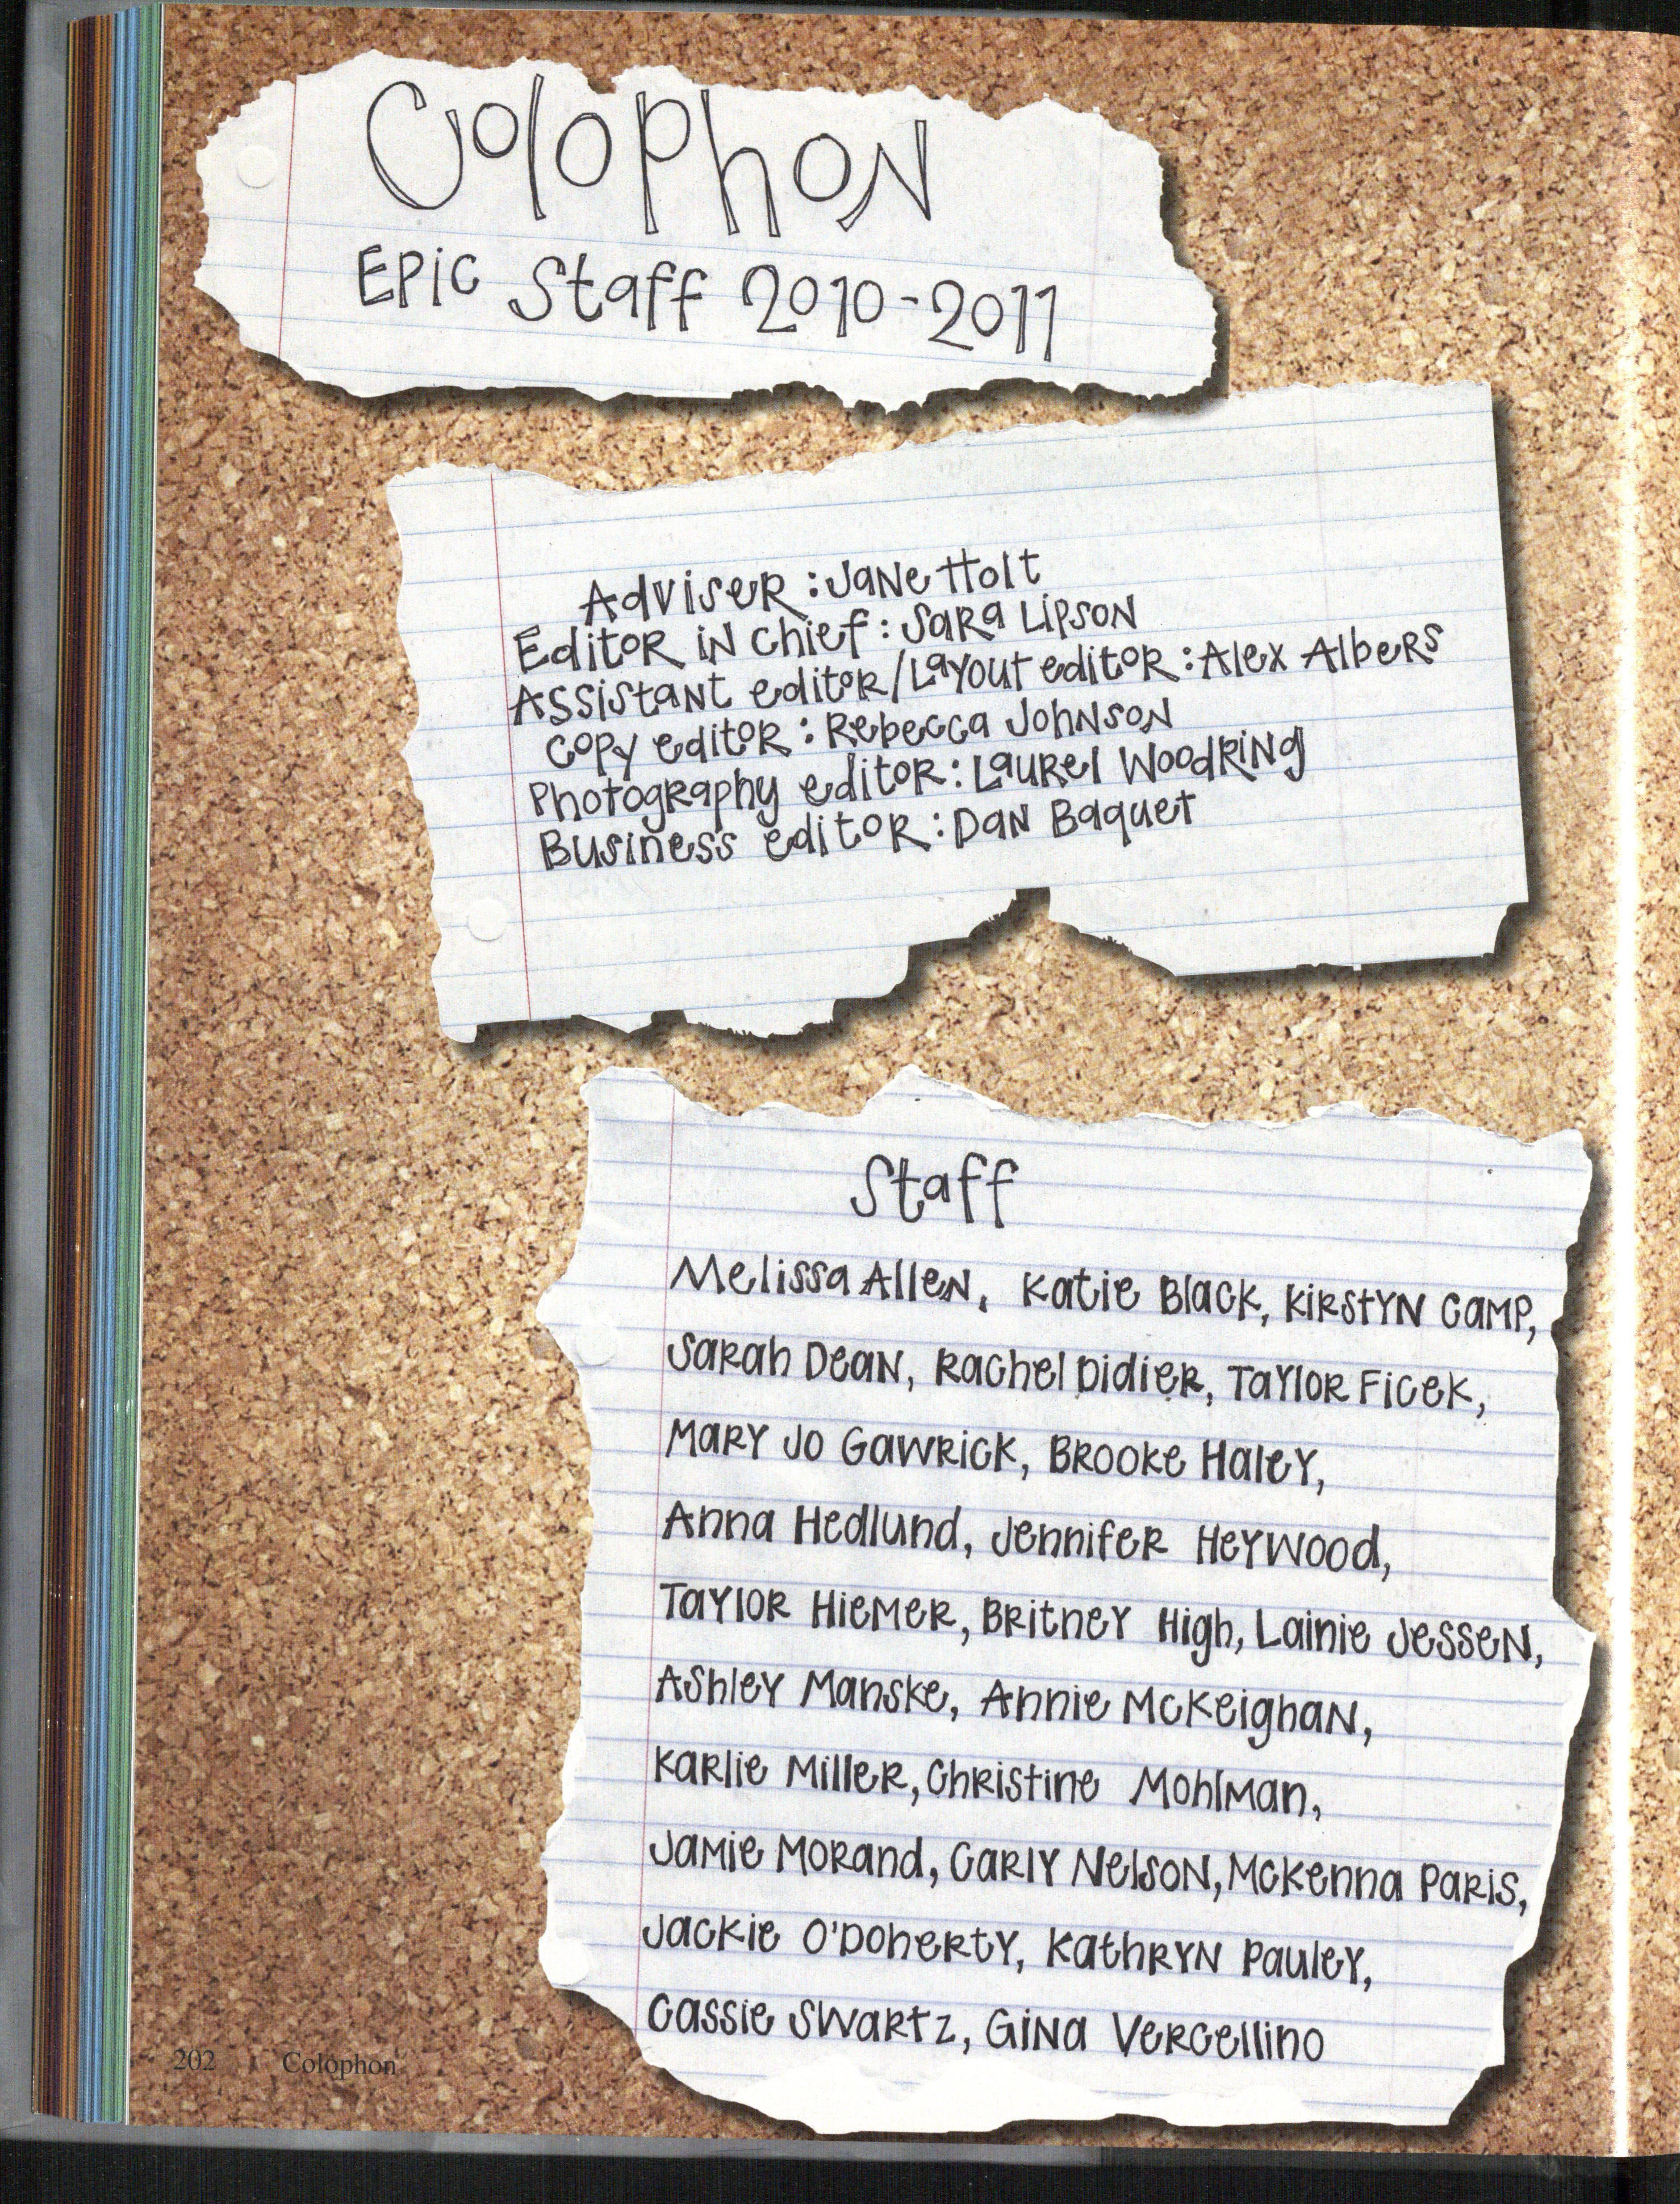 Colophon
Epic Staff 2010-2011
Adviser: Jane Holt
Editor in chief: Sara Lipson
Assistant editor/Layout editor: Alex Albers
Copy editor: Rebecca Johnson
Photography editor: Laurel Woodring
Business editor: Dan Baquet
Staff
Melissa Allen, Katie Black, Kirstyn Camp,
Sarah Dean, Rachel Didier, Taylor Ficek,
Mary Jo Gawrick, Brooke Haley,
Anna Hedlund, Jennifer Heywood,
Taylor Hiemer, Britney High, Lainie Jessen,
Ashley Manske, Annie McKeighan,
Karlie Miller, Christine Mohlman,
Jamie Morand, Carly Nelson, McKenna Paris,
Jackie O'Doherty, Kathryn Pauley,
Cassie Swartz, Gina Vercellino
202 Colophon